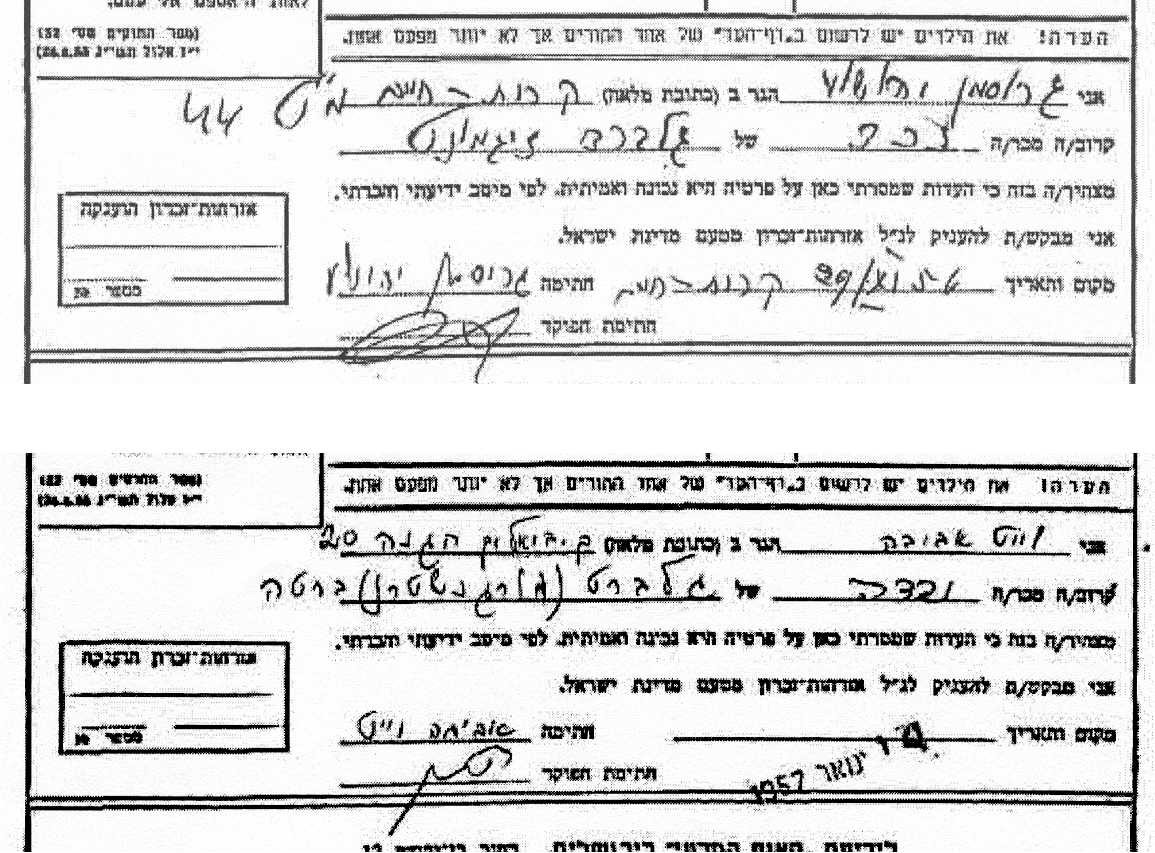 לאות היאספם אל עמם.
(ספר החוקים מס׳ 132)
י״ז אלול תשי״ג 28.8.53)
הערה! את הילדים יש לרשום ב„דף־העד״ של אחד ההורים אך לא יותר מפעם אחת.
אני גרוסמן הגר ב (כתובת מלאה) קרית־חיים 44
קרוב/ה מכר/ה נכד של גלברד זיגמונט
מצהיר/ה בזה כי העדות שמסרתי כאן על פרטיה היא נכונה ואמיתית, לפי מיטב ידיעתי והכרתי.
אני מבקש/ת להעניק לנ״ל אזרחות־זכרון מטעם מדינת ישראל.
מקום ותאריך קרית־חיים חתימה גרוסמן
חתימת הפוקד
אזרחות־זכרון הוענקה
מספר
(ספר החוקים מס׳ 132)
י״ז אלול תשי״ג 28.8.53)
הערה! את הילדים יש לרשום ב„דף־העד״ של אחד ההורים אך לא יותר מפעם אחת.
אני וייט אביבה הגר ב (כתובת מלאה) הגנה 20
קרוב/ה מכר/ה נכדה של גלברט (מורגנשטרן) ברטה
מצהיר/ה בזה כי העדות שמסרתי כאן על פרטיה היא נכונה ואמיתית, לפי מיטב ידיעתי והכרתי.
אני מבקש/ת להעניק לנ״ל אזרחות־זכרון מטעם מדינת ישראל.
מקום ותאריך ינואר 1957 חתימה אביבה וייט
חתימת הפוקד
אזרחות־זכרון הוענקה
מספר